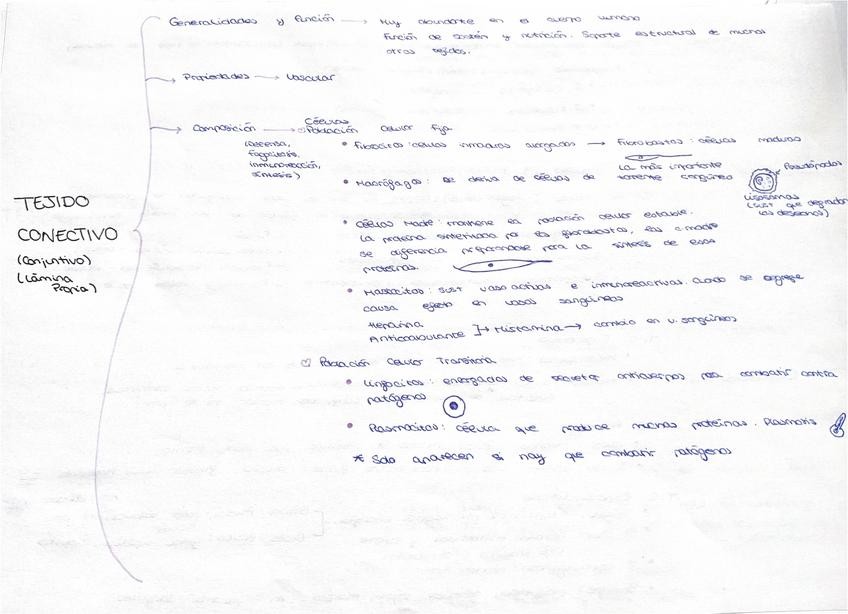 Generalidades y Función → Muy abundante en el cuerpo humano
Función de sostén y nutrición. Soporte estructural de muchos
otros tejidos.
Propiedades → Vascular
Composición → Células
Población celular fija
(Defensa,
fagocitosis,
inmunoreacción,
síntesis)
• Fibrocitos: células inmaduras alargadas → Fibroblastos: células maduras
La más importante
• Macrófagos: se deriva de células de torrente sanguíneo
Pseudópodos
Lisosomas
(sust que degradan
los desechos)
TEJIDO
CONECTIVO
(Conjuntivo)
(Lámina
Propia)
• Células Madre: mantiene la población celular estable.
La proteína sintetizada por los fibroblastos, las c. madre
se diferencia preparandose para la síntesis de esas
proteínas.
• Mastocitos: sust vasoactivas e inmunoreactivas. Cuando se
causa efecto en vasos sanguíneos
Heparina
Anticoagulante }→ Histamina → cambio en v. sangúineos
Población Celular Transitoria
• Linfocitos: encargados de secretar anticuerpos para combatir contra
patógenos
• Plasmocitos: célula que produce muchas proteínas.
* Solo aparecen si hay que combatir patógenos